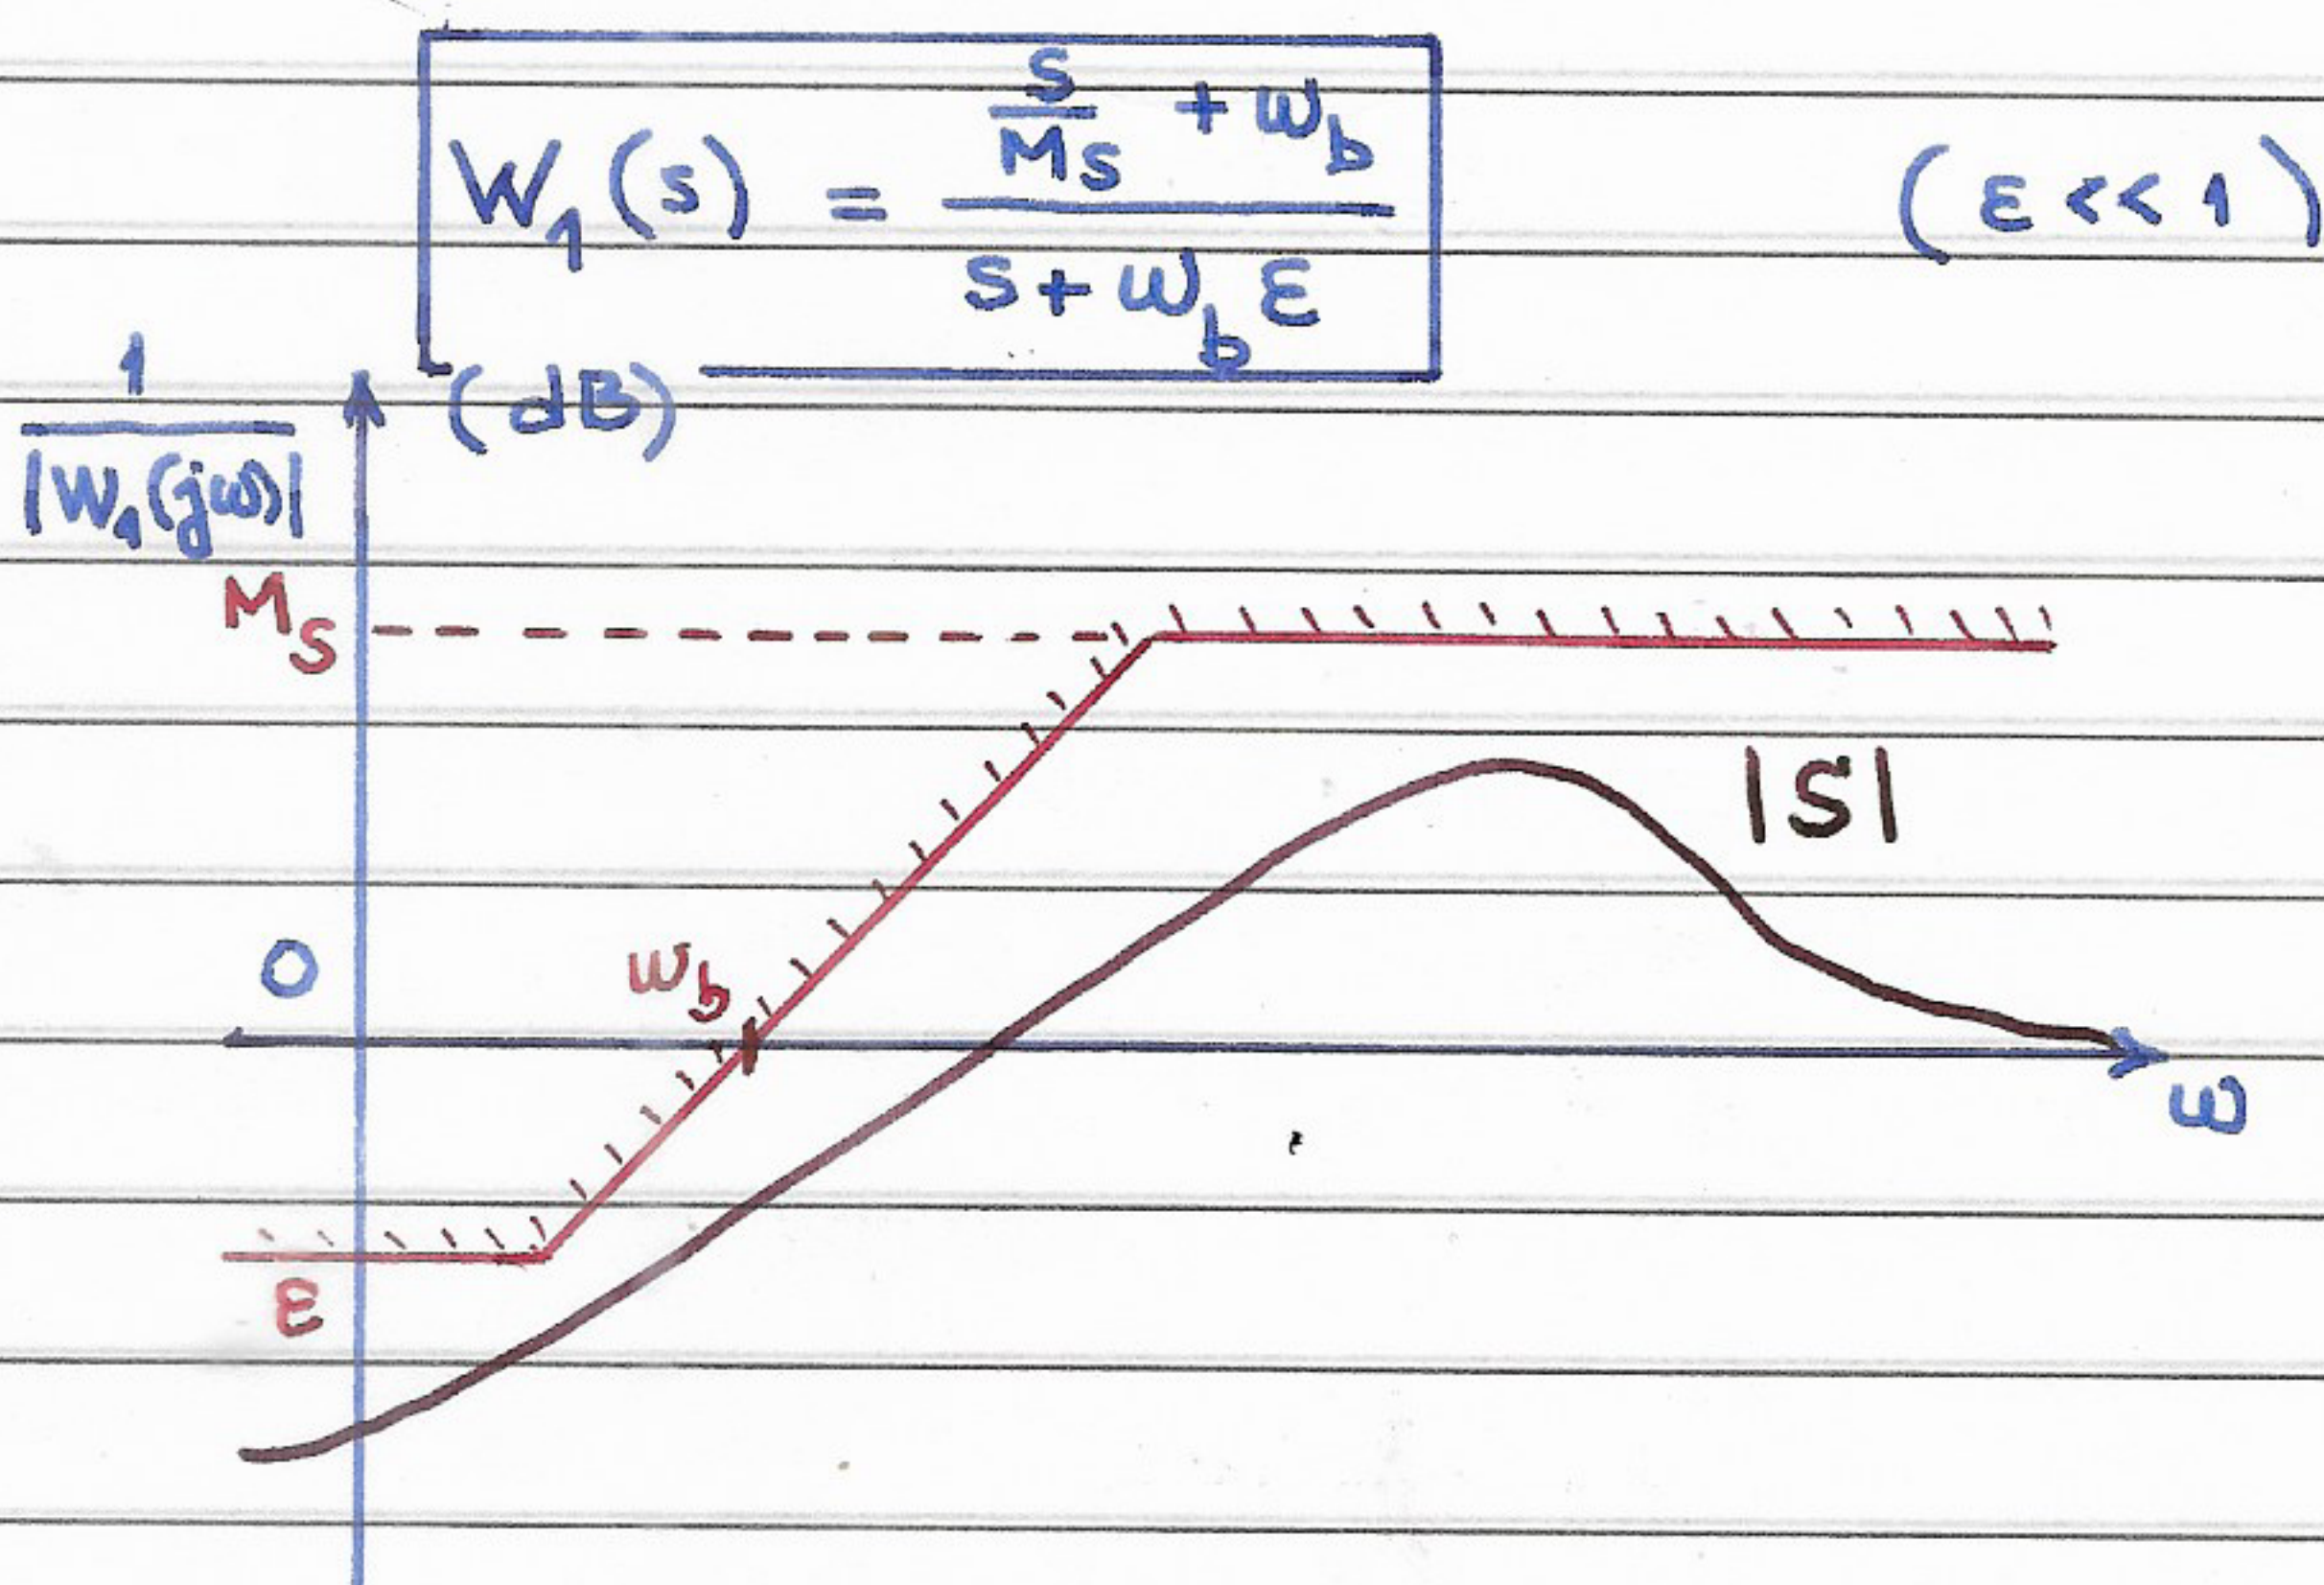 W₁(s) = (s/Ms + ωb) / (s + ωb ε)    (ε << 1)
1/|W₁(jω)| (dB)
Ms
|S|
0 ωb
ω
ε